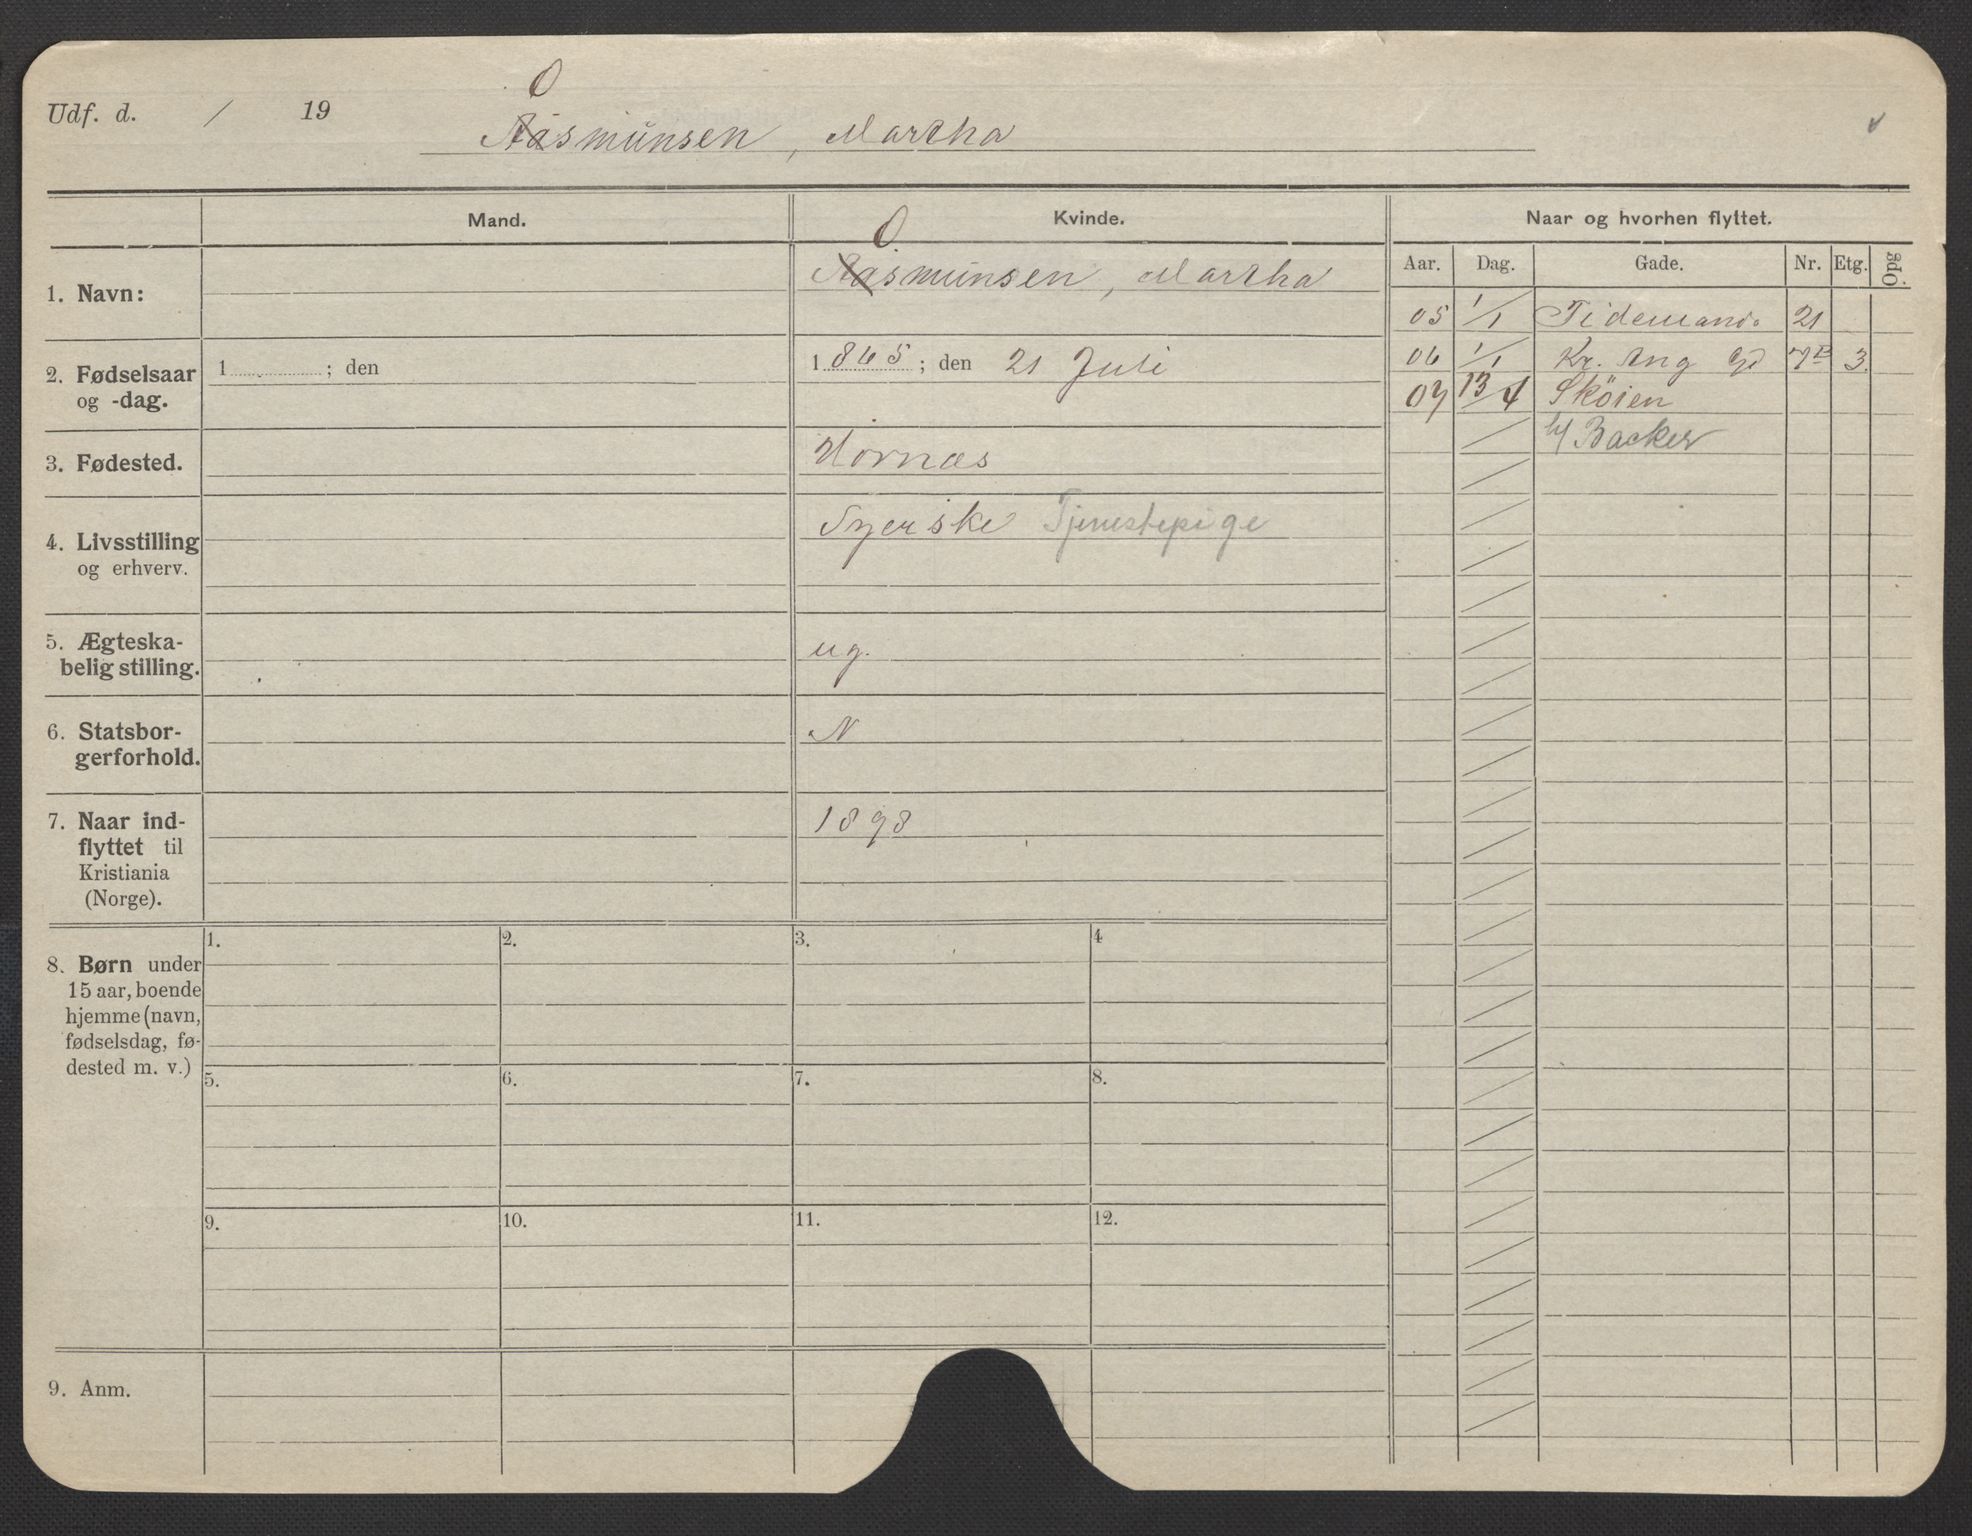 Udf. d. / 19
O
Aasmunsen, Martha
Mand.
Kvinde.
Naar og hvorhen flyttet.
Aar. Dag. Gade. Nr. Etg. Opg
1. Navn:
O
Aasmunsen, Martha
05 1/1 Tidemands. 21
2. Fødselsaar
og -dag.
1 ; den
1865 ; den 21 Juli
06 1/1 Kr. Aug Gd 7B 3
07 13/4 Sköien
h/ Backer
3. Fødested.
Hornæs
4. Livsstilling
og erhverv.
Syerske Tjenestepige
5. Ægteska-
belig stilling.
ug.
6. Statsbor-
gerforhold.
N
7. Naar ind-
flyttet til
Kristiania
(Norge).
1898
8. Børn under
15 aar, boende
hjemme (navn,
fødselsdag, fø-
dested m. v.)
1. 2. 3. 4
5. 6. 7. 8.
9. 10. 11. 12.
9. Anm.